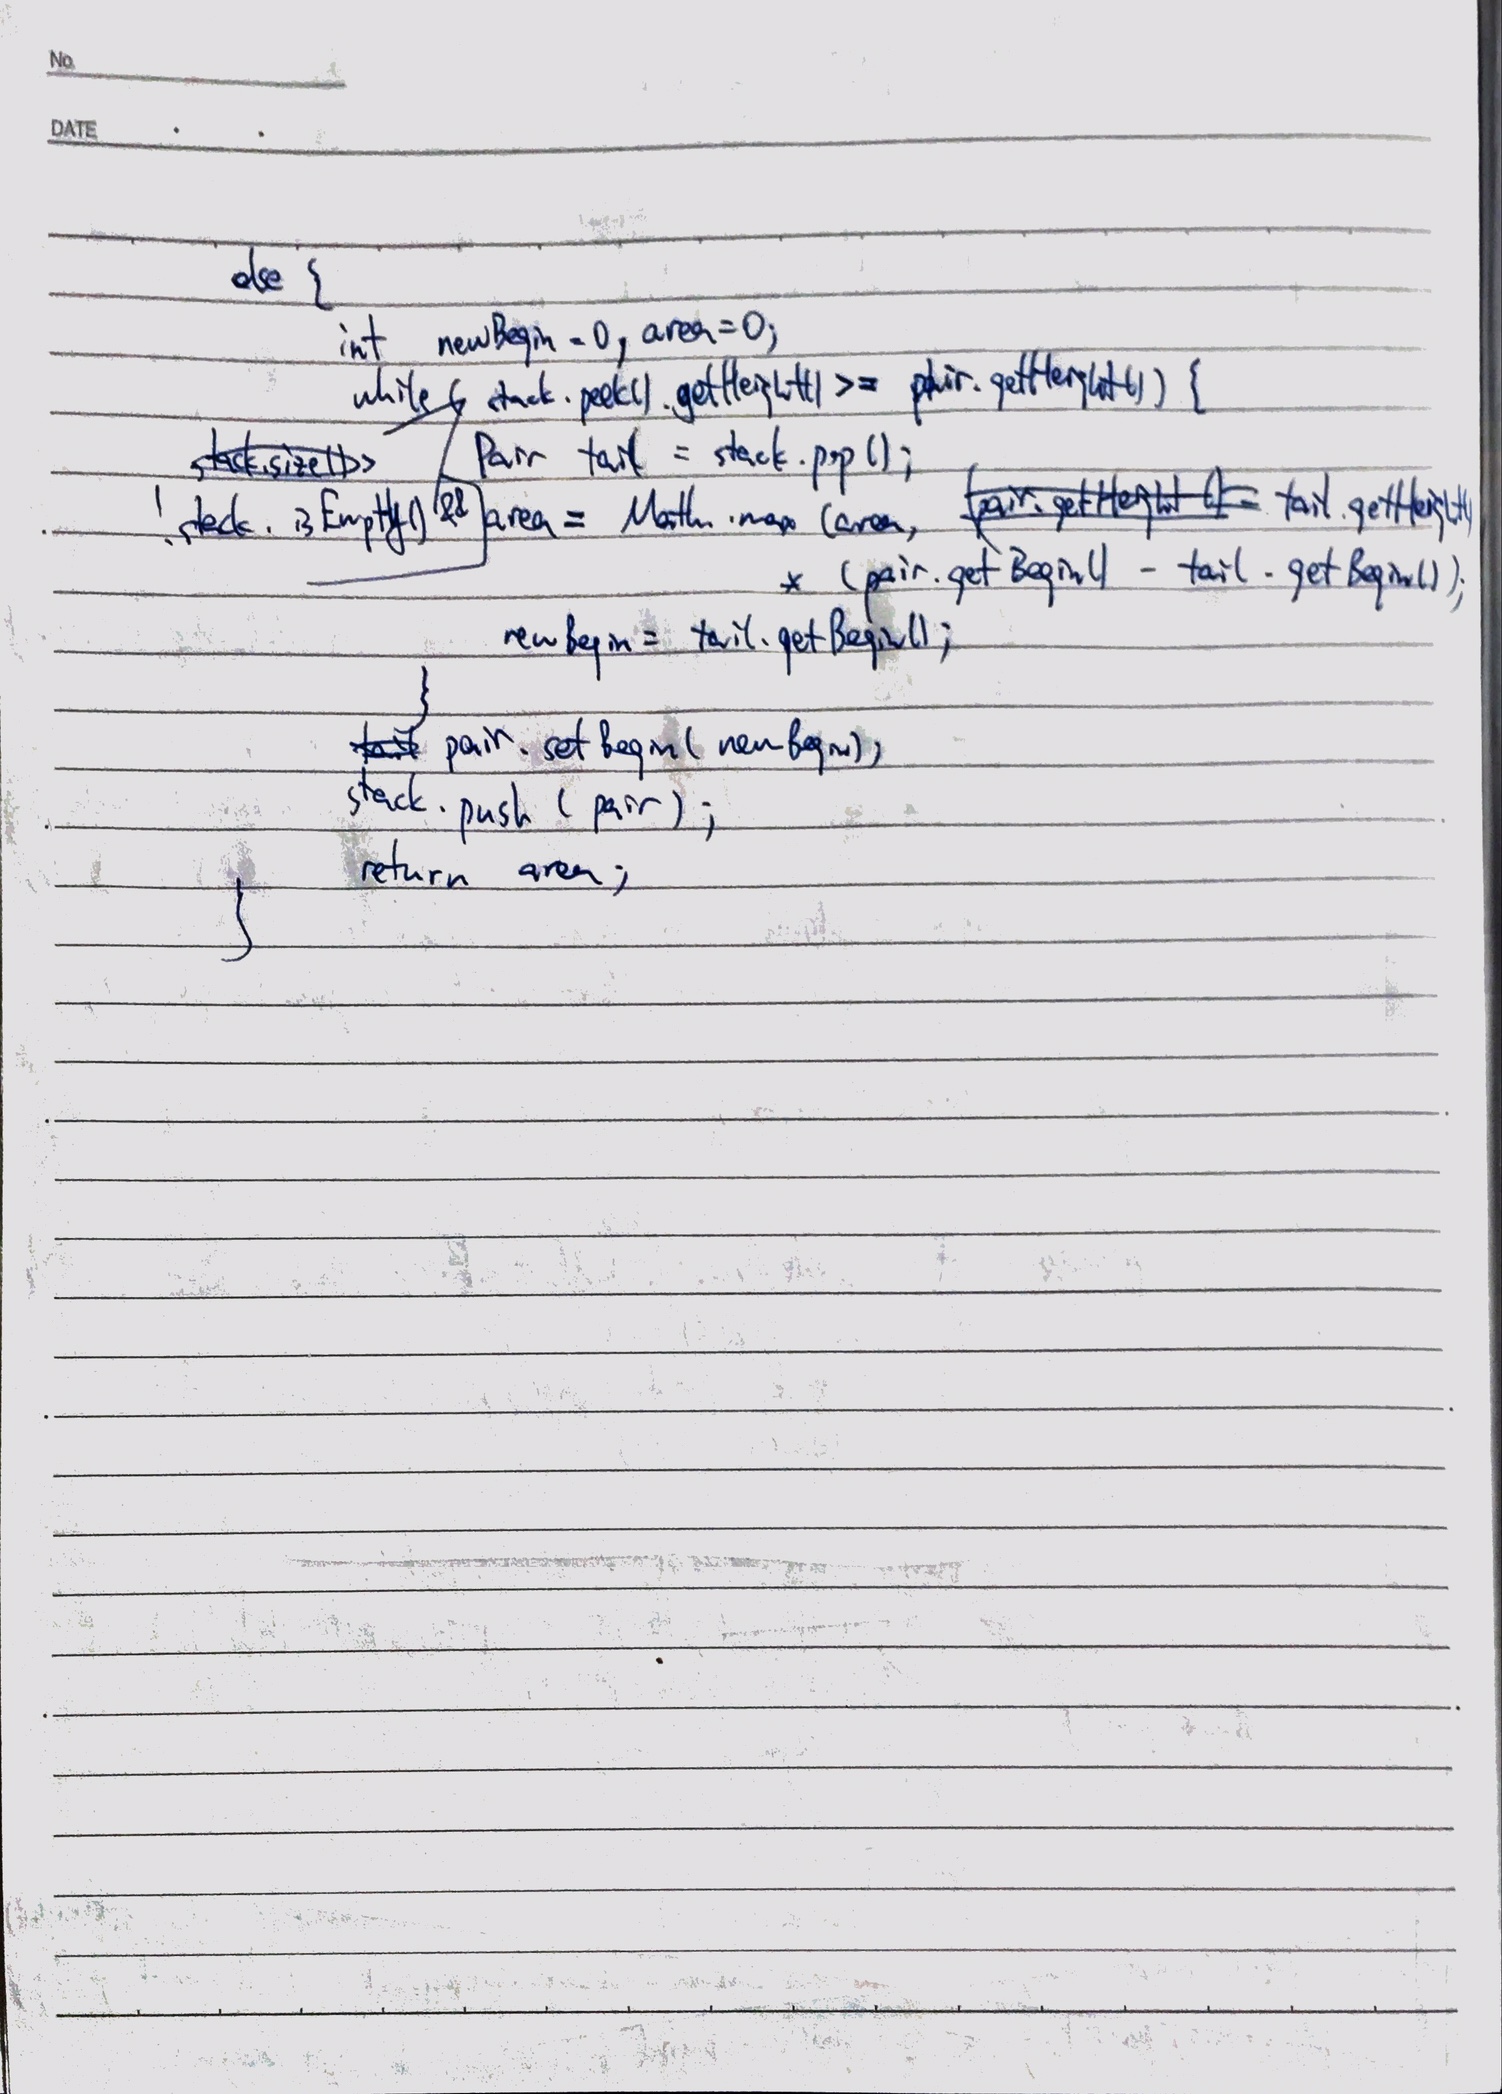 No.
DATE
else {
int newBegin = 0, area = 0;
while ( stack.peek().getHeight() >= pair.getHeight() ) {
stack.size() >
Pair tail = stack.pop();
!stack.isEmpty() &&
area = Math.max (area, (pair.getHeight() = tail.getHeight()
* (pair.getBegin() - tail.getBegin());
newBegin = tail.getBegin();
}
tail pair.setBegin( newBegin);
stack.push (pair);
return area;
}